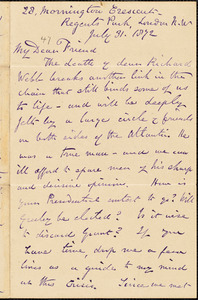 23, Mornington Crescent
Regents Park, London N.W.
July 31. 1872
My Dear Friend
The death of dear Richard
Webb breaks another link in the
chain that still binds some of us
to life - and will be deeply
felt by a large circle of friends
on both sides of the Atlantic. He
was a true man - and we can
ill afford to spare men of his sharp
and decisive opinion. How is
your Presidential contest to go? Will
Greeley be elected? Is it wise
to discard Grant? If you
have time, drop me a few
lines as a guide to my mind
in this crisis. Since we met